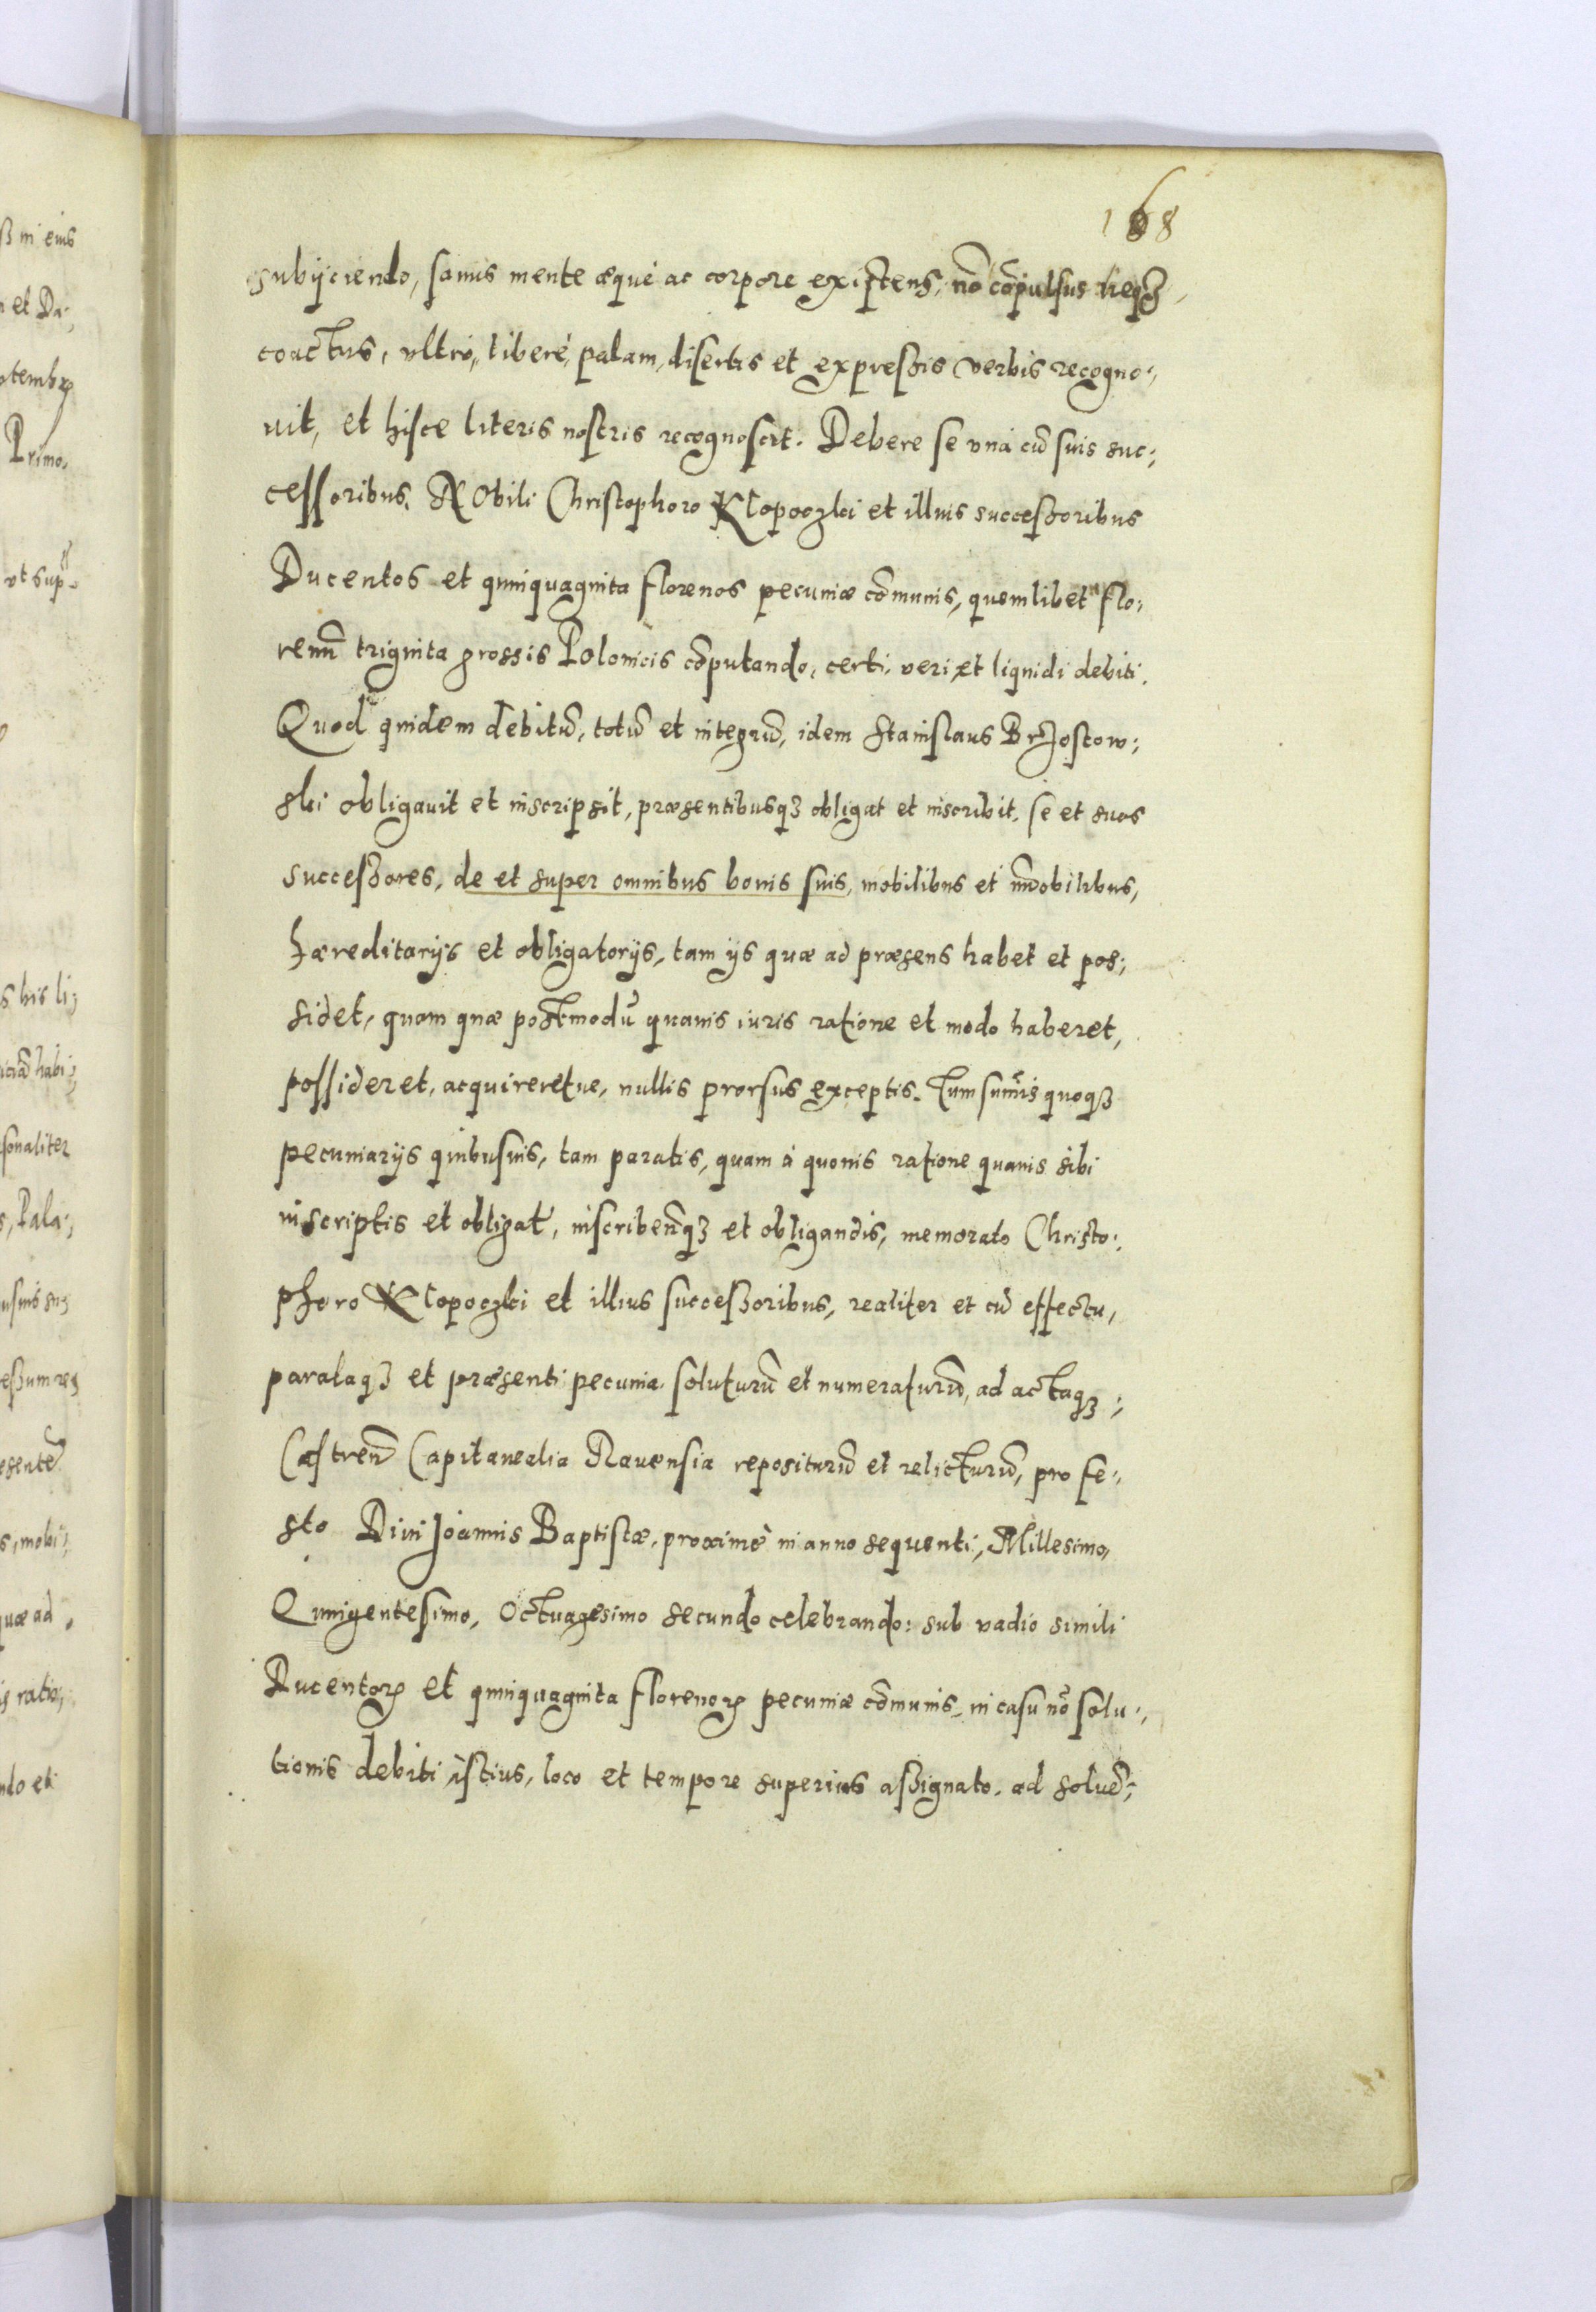 168
subijciendo, sanus mente æque ac corpore existens, nō cōpulsus neqȝ
coactus, vltrò, liberè, palam, disertis et expressis verbis recogno:
uit, et hisce literis nostris recognoscit. Debere se vnà cū suis suc:
cessoribus, Nobili Christophoro Klopoczki et illius successoribus
Ducentos et quinquaginta florenos pecuniæ cōmunis, quemlibet flo:
renū triginta grossis Polonicis cōputando, certi, veri et liquidi debiti.
Quod quidem debitū, totū et integrū, idem Stanislaus Brzostow:
ski obligauit et inscripsit, præsentibusqȝ obligat et inscribit, se et suos
successores, de et super omnibus bonis suis, mobilibus et īmobilibus,
hæreditarijs et obligatorijs, tam ijs quæ ad præsens habet et pos:
sidet, quam quæ postmodū quauis iuris ratione et modo haberet,
possideret, acquireretue, nullis prorsus exceptis. Tum sum̄is quoqȝ
pecuniarijs quibusuis, tam paratis, quam à quouis ratione quauis sibi
inscriptis et obligat̄, inscriben̄qȝ et obligandis, memorato Christo:
phoro Klopoczki et illius successoribus, realiter et cū effectu,
parataqȝ et præsenti pecunia soluturū et numeraturū, ad actaqȝ
Castren̄ Capitanealia Rauensia repositurū et relicturū, pro fe:
sto Diui Joannis Baptistæ, proximè in anno sequenti, Millesimo,
Quingentesimo, Octuagesimo secundo celebrando: sub vadio simili
Ducentoꝝ et quinquaginta florenoꝝ pecuniæ cōmunis, in casu nō solu:
tionis debiti istius, loco et tempore superius assignato, ad soluē: